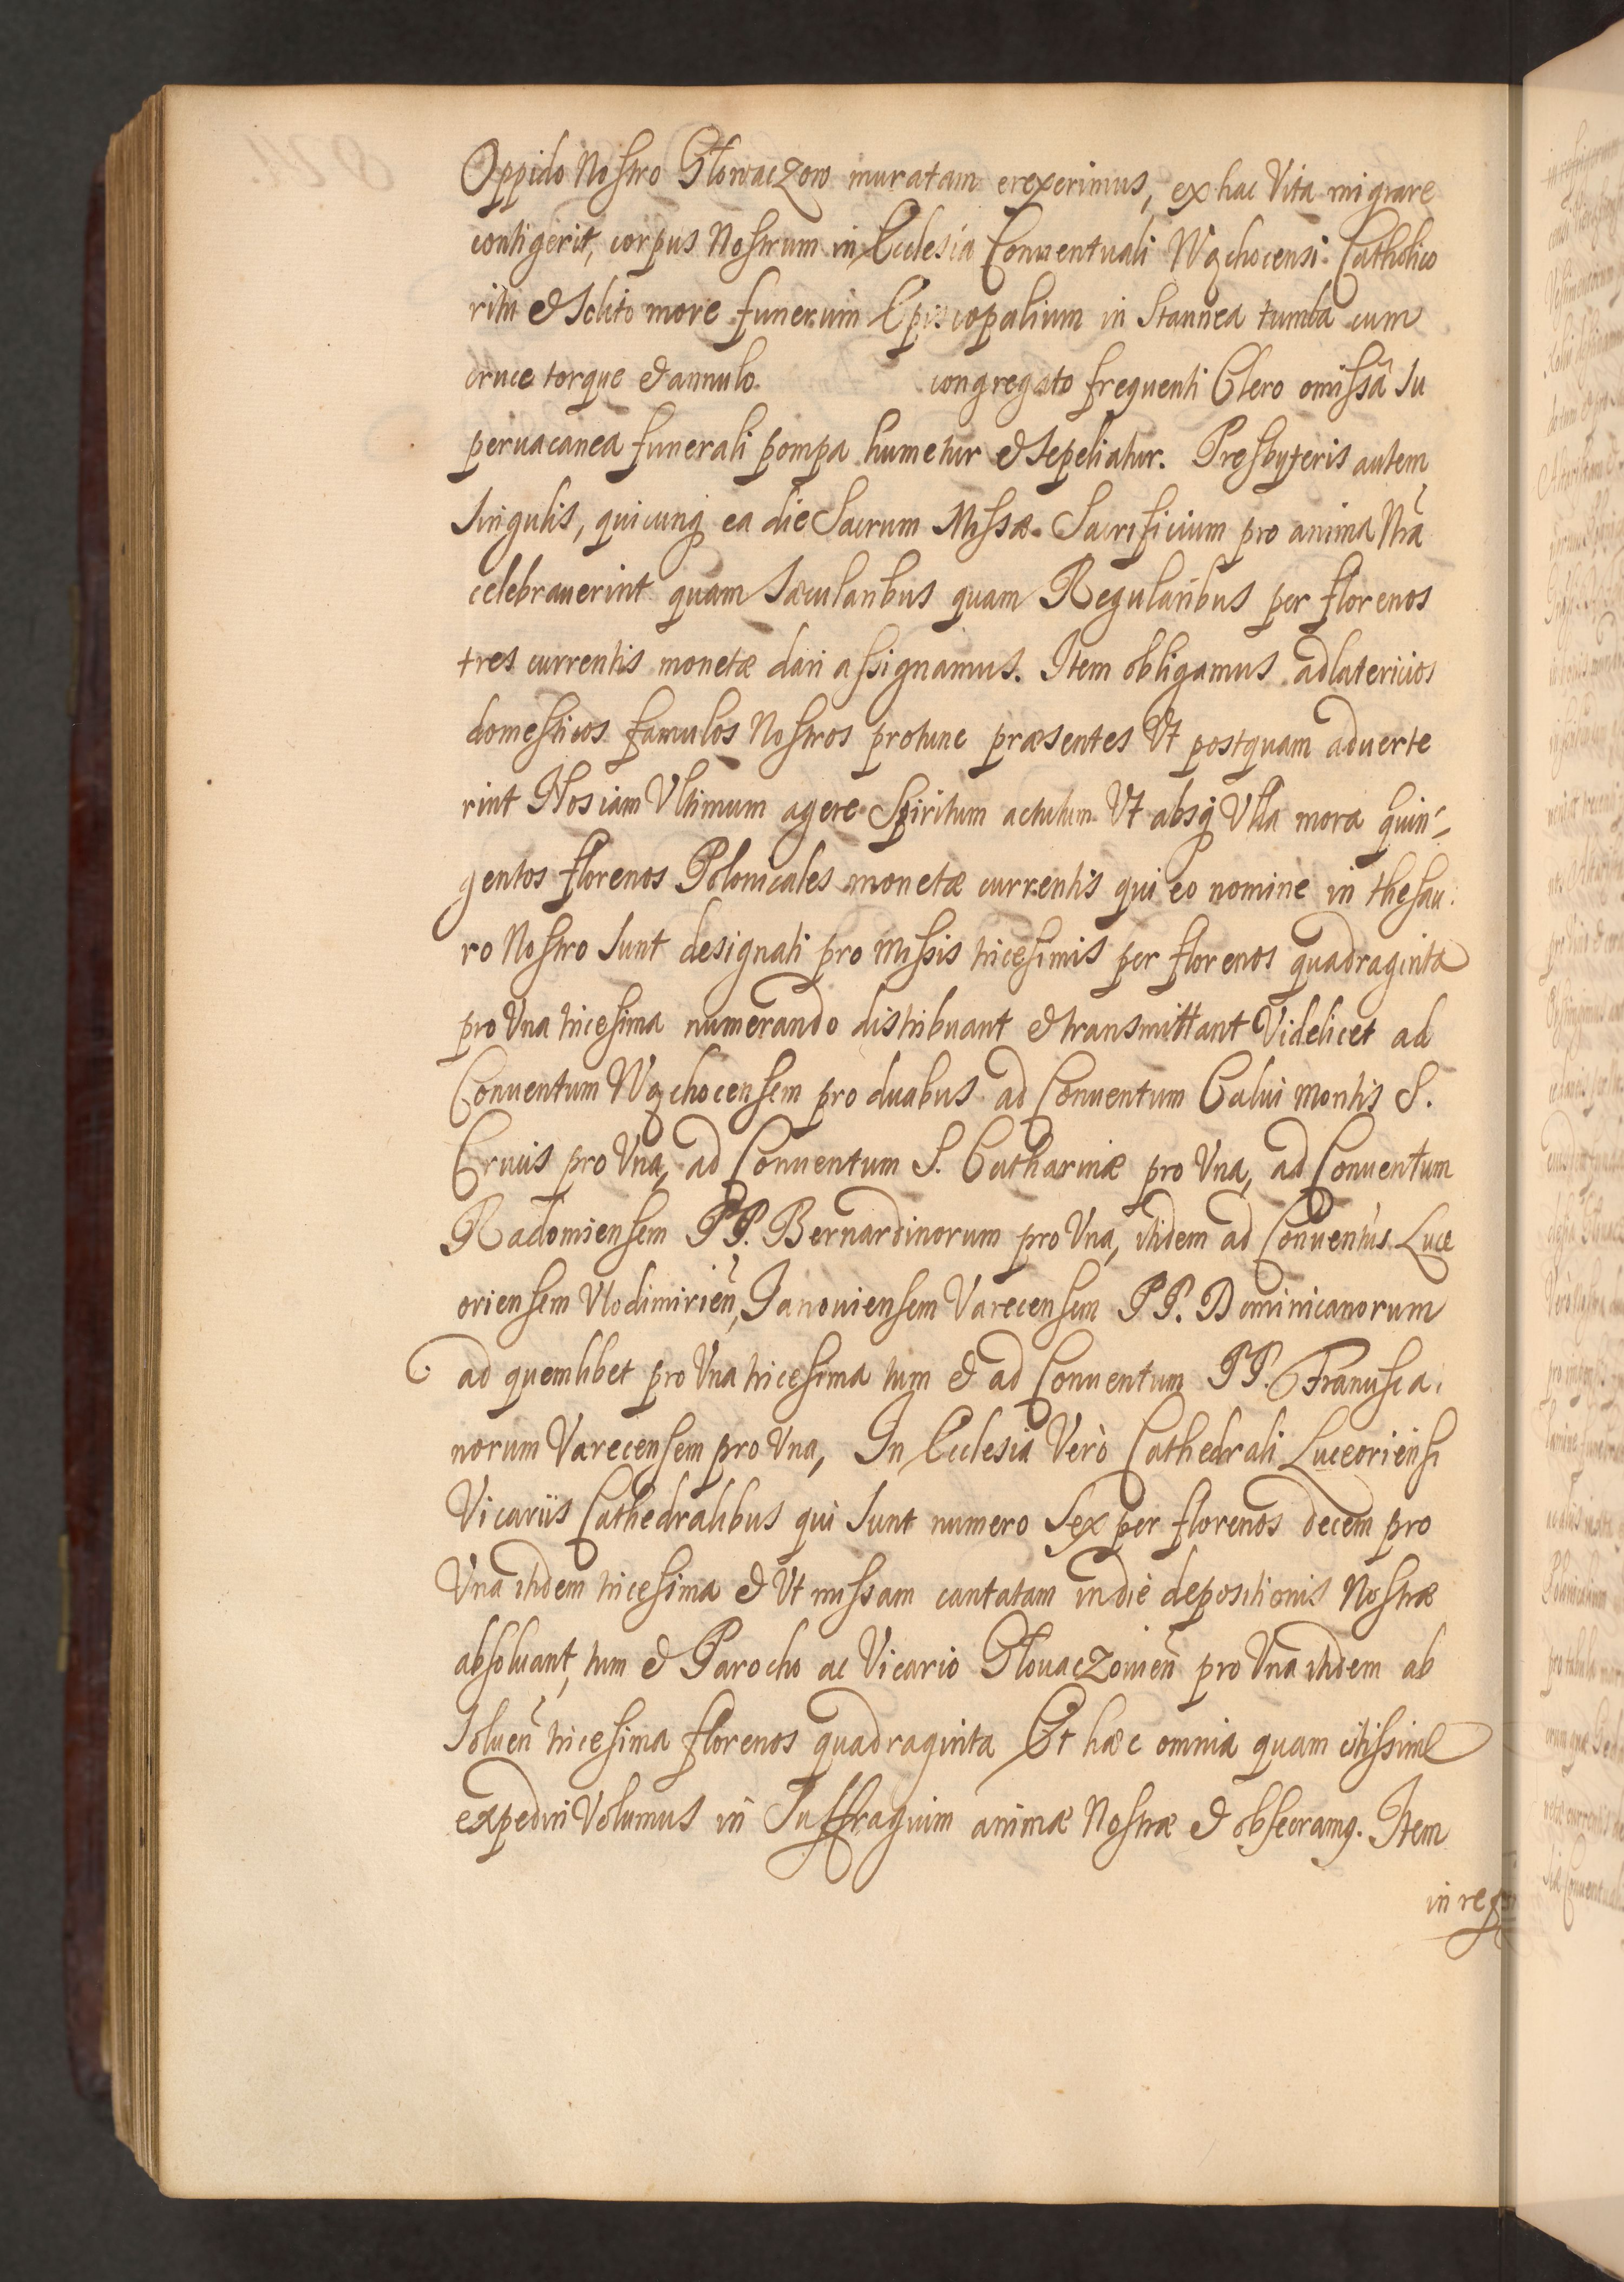 Oppido Nostro Głowaczow muratam erexerimus, ex hac Vita migrare
contigerit, corpus Nostrum in Ecclesia Conuentuali Wąchocensi Catholico
ritu & Solito more funerum Episcopalium in Stannea tumba cum
cruce torque & annulo. congregato frequenti Clero omissâ Su
peruacanea funerali pompa humetur & Sepeliatur. Presbyteris autem
Singulis, quicunq ea die Sacrum Missæ Sacrificium pro anima Nrã
celebrauerint quam Sæcularibus quam Regularibus per florenos
tres currentis monetæ dari assignamus. Item obligamus adlatericios
domesticos famulos Nostros protunc præsentes Vt postquam aduerte
rint Nos iam Vltimum agere Spiritum actutum Vt absq Vlla mora quin-
gentos florenos Polonicales monetæ currentis qui eo nomine in thesau
ro Nostro Sunt designati pro Missis tricesimis per florenos quadraginta
pro Vna tricesima numerando distribuant & transmittant Videlicet ad
Conuentum Wąchocensem pro duabus ad Conuentum Calui Montis S.
Crucis pro Vna, ad Conuentum S. Catharinæ pro Vna, ad Conuentum
Radomiensem PP. Bernardinorum pro Vna, itidem ad Conuentus Luce
oriensem Vlodimirien, Ianouiensem Varecensem PP. Dominicanorum
ad quemlibet pro Vna tricesima tum & ad Conuentum PP. Francisca
norum Varecensem pro Vna, In Ecclesia Verò Cathedrali Luceoriensi
Vicariis Cathedralibus qui Sunt numero Sex per florenos decem pro
Vna itidem tricesima & Vt missam cantatam in die depositionis Nostræ
absoluant, tum & Parocho ac Vicario Głouaczouien pro Vna itidem ab
Soluen tricesima florenos quadraginta Et hæc omnia quam citissime
expediri Volumus in Suffragium animæ Nostræ & obsecramq. Item